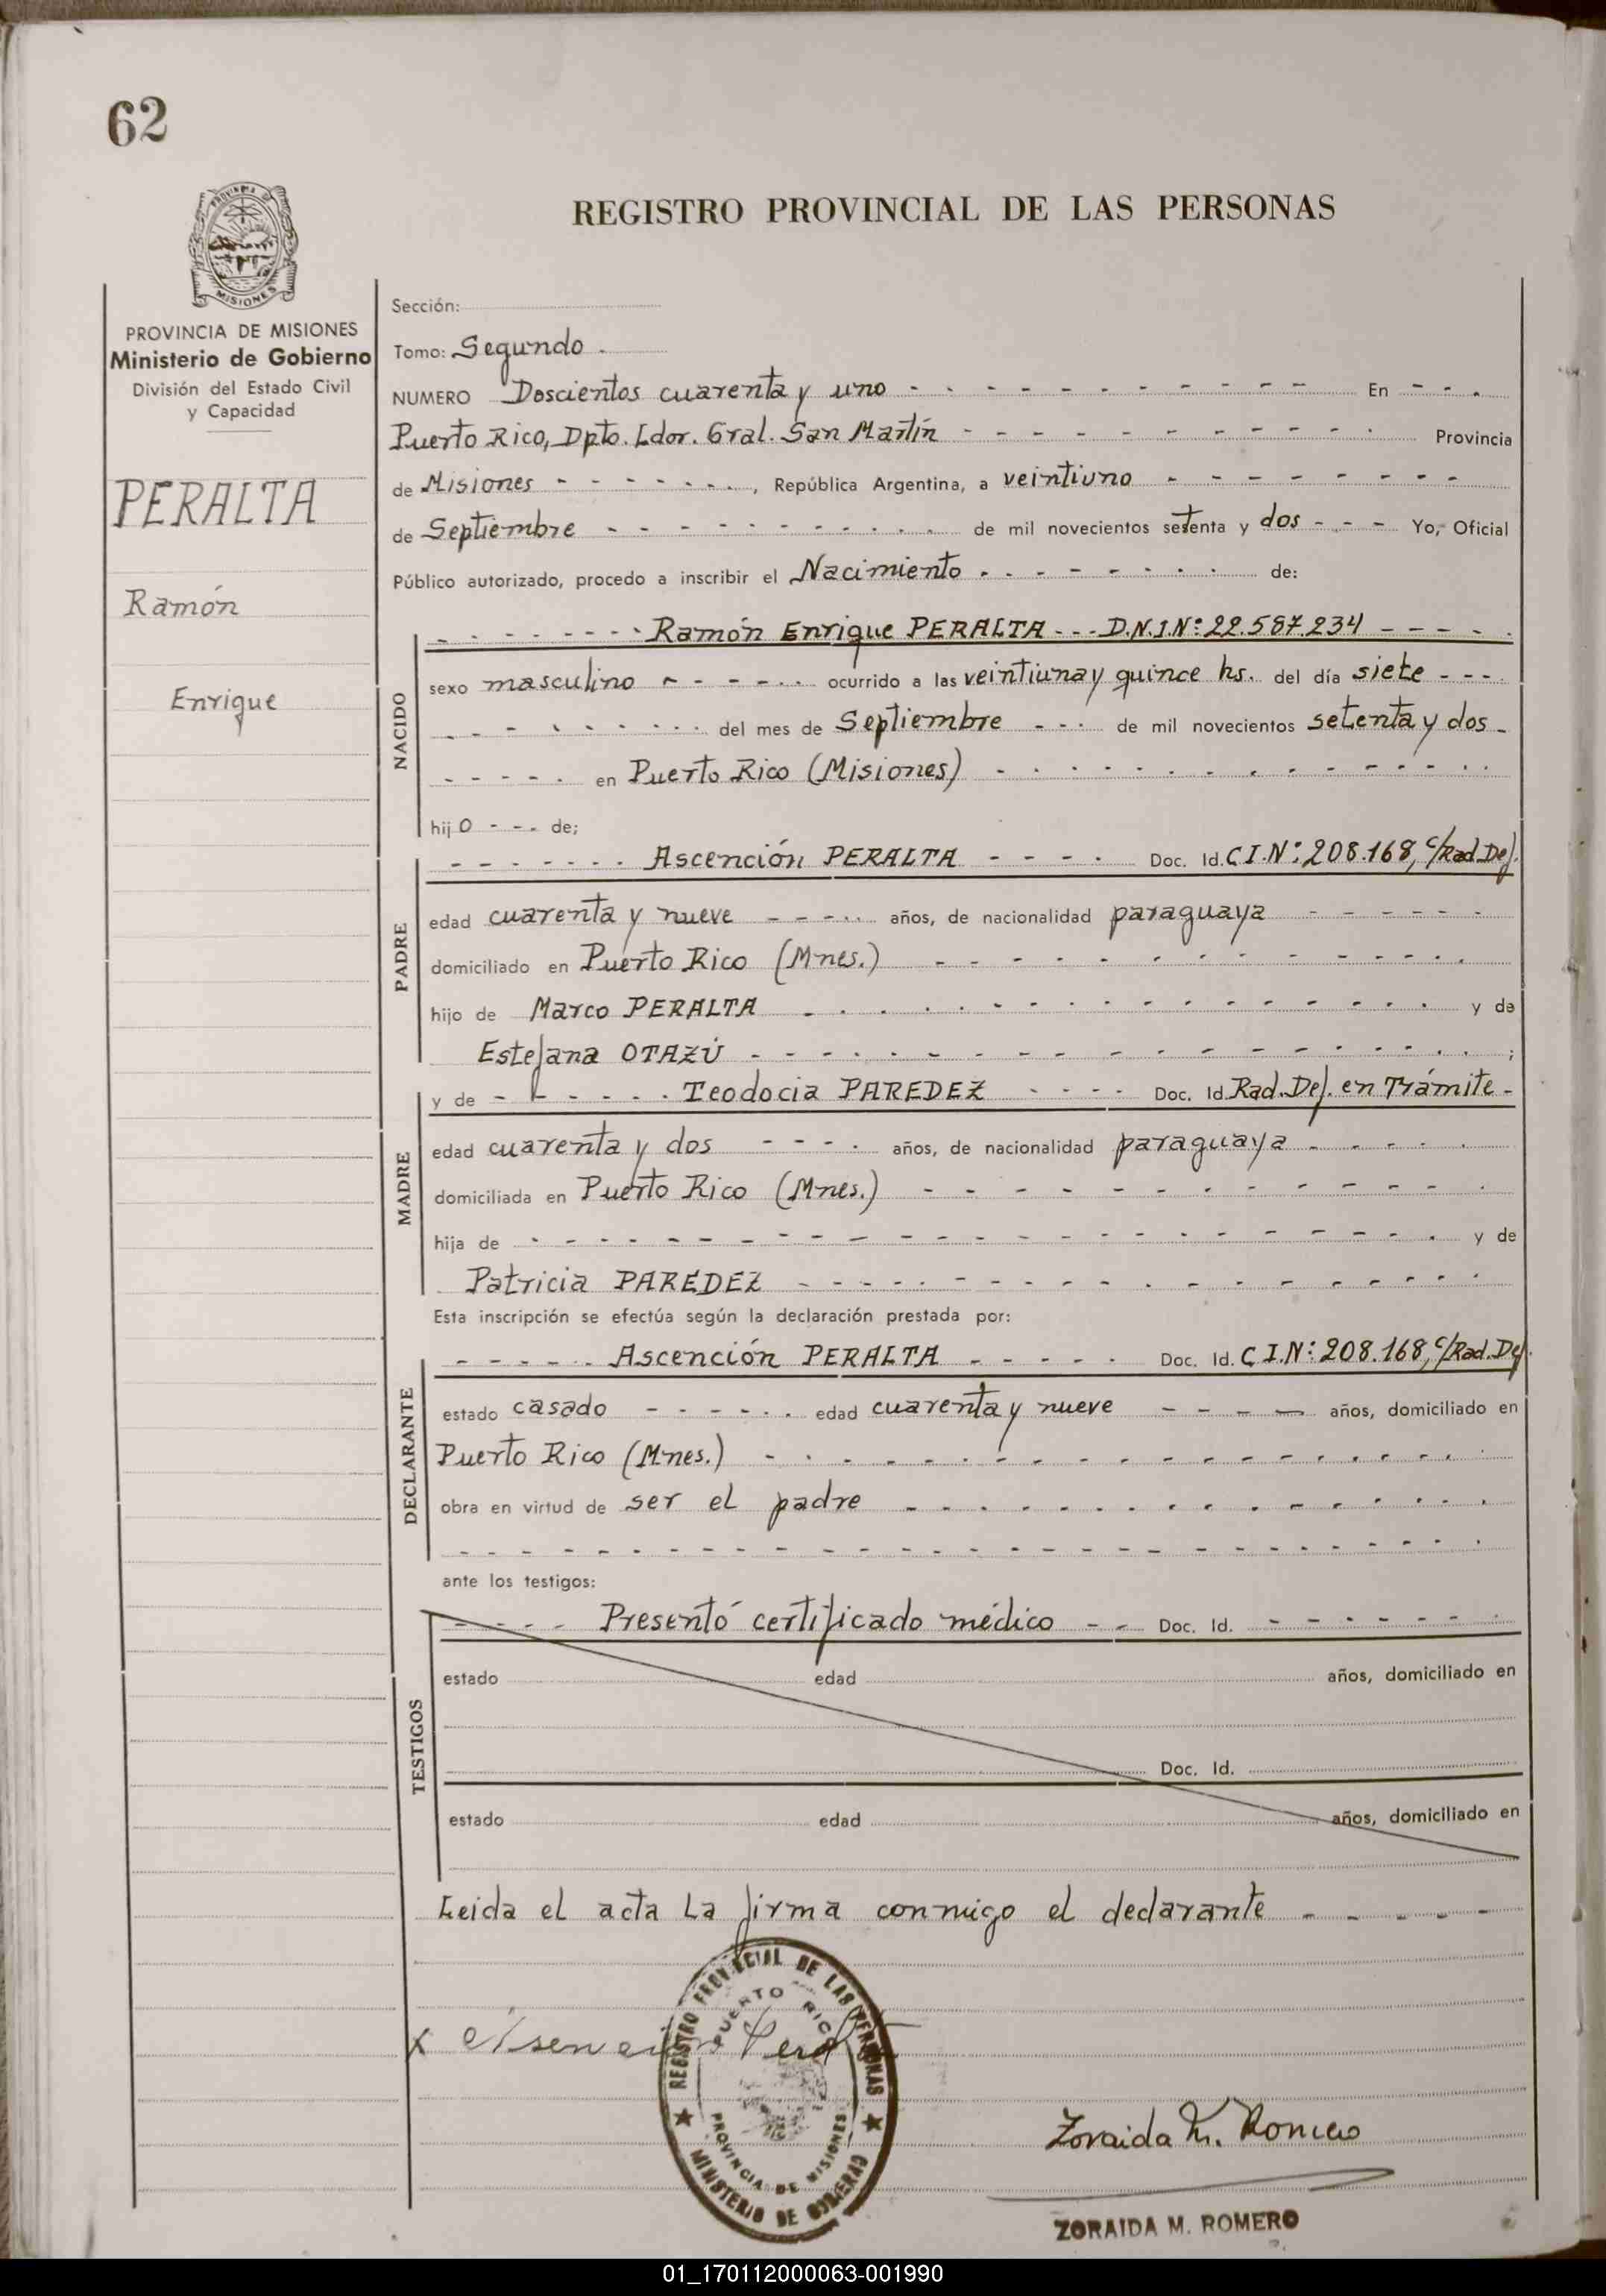 62
REGISTRO PROVINCIAL DE LAS PERSONAS
PROVINCIA DE MISIONES
Ministerio de Gobierno
División del Estado Civil
y Capacidad
PERALTA
Ramón
Enrique
Sección:
Tomo: Segundo.
NUMERO Doscientos cuarenta y uno - - - - - - - - - - - En - - -
Puerto Rico, Dpto. Ldor. Gral. San Martín - - - - - - - - - - - Provincia
de Misiones - - - - - - -, República Argentina, a veintiuno - - - - - - - -
de Septiembre - - - - - - - - - - de mil novecientos setenta y dos - - - Yo, Oficial
Público autorizado, procedo a inscribir el Nacimiento - - - - - - - - de:
NACIDO
- - - - - - - Ramón Enrique PERALTA - - - D.N.I.Nº: 22.587.234 - - - - -
sexo masculino - - - - - - ocurrido a las veintiuna y quince hs. del día siete - - -
- - - - - - - - del mes de Septiembre - - - de mil novecientos setenta y dos -
- - - - - en Puerto Rico (Misiones) - - - - - - - - - - - - -
hijo - - - de;
PADRE
- - - - - - - Ascención PERALTA - - - - Doc. Id. C I.Nº: 208.168, c/Rad.Def.
edad cuarenta y nueve - - - - - años, de nacionalidad paraguaya - - - - - -
domiciliado en Puerto Rico (Mnes.) - - - - - - - - - - - - - -
hijo de Marco PERALTA - - - - - - - - - - - - - - - - y de
Estefana OTAZÚ - - - - - - - - - - - - - - - - - - ;
MADRE
y de - - - - - - Teodocia PAREDEZ - - - - Doc. Id. Rad. Def. en Trámite -
edad cuarenta y dos - - - - años, de nacionalidad paraguaya - - - - -
domiciliada en Puerto Rico (Mnes.) - - - - - - - - - - - - -
hija de - - - - - - - - - - - - - - - - - - - - - y de
Patricia PAREDEZ - - - - - - - - - - - - - - - - - -
Esta inscripción se efectúa según la declaración prestada por:
DECLARANTE
- - - - - - Ascención PERALTA - - - - - Doc. Id. C I.Nº: 208.168, c/Rad. Def.
estado casado - - - - - - edad cuarenta y nueve - - - - años, domiciliado en
Puerto Rico (Mnes.) - - - - - - - - - - - - - - - - - -
obra en virtud de ser el padre - - - - - - - - - - - - - - -
- - - - - - - - - - - - - - - - - - - - - - - - - - - -
ante los testigos:
TESTIGOS
- - - - Presentó certificado médico - - Doc. Id. - - - - - - -
estado edad años, domiciliado en
Doc. Id.
estado edad años, domiciliado en
Leida el acta la firma conmigo el declarante - - - - -
x Asención Peralta
REGISTRO PROVINCIAL DE LAS PERSONAS
PUERTO RICO
PROVINCIA DE MISIONES
★ MINISTERIO DE GOBIERNO ★
Zoraida M. Romero
ZORAIDA M. ROMERO
01_170112000063-001990